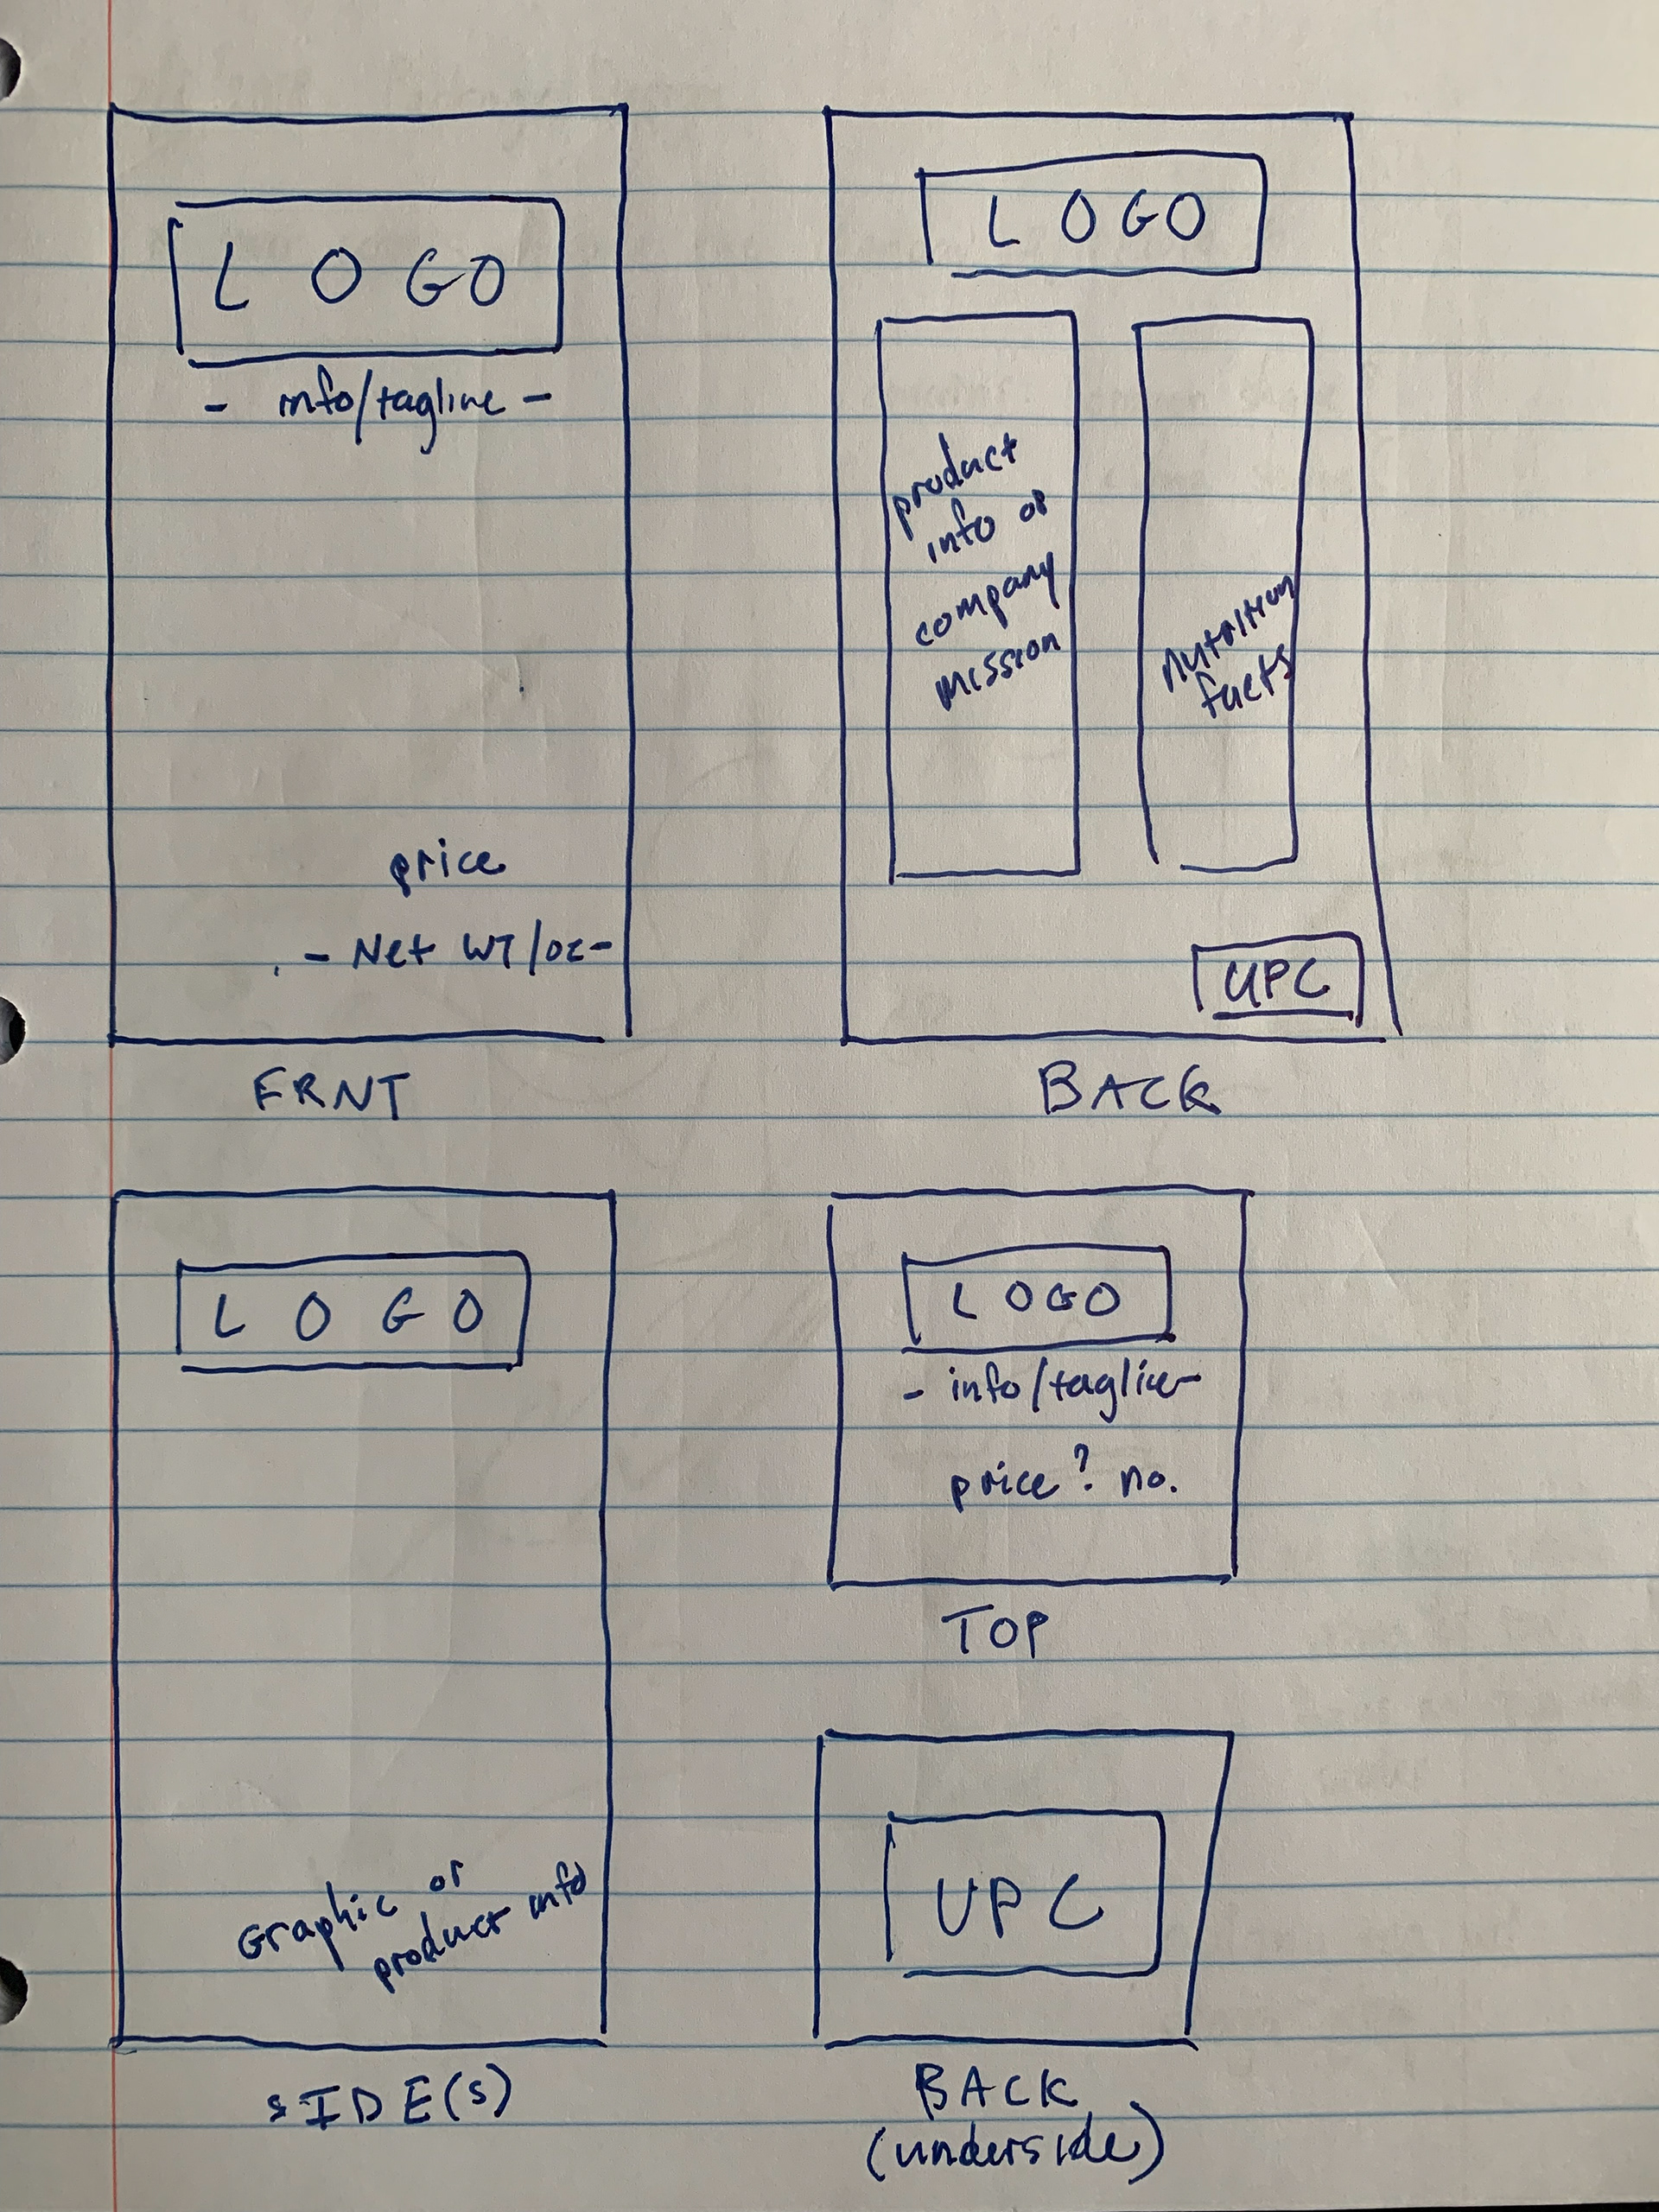 LOGO
- info/tagline -
price
- Net WT/oz -
FRNT
LOGO
product
info or
company
mission
Nutrition
facts
UPC
BACK
LOGO
Graphic or
product info
SIDE(S)
LOGO
- info/tagline -
price? no.
TOP
UPC
BACK
(underside)